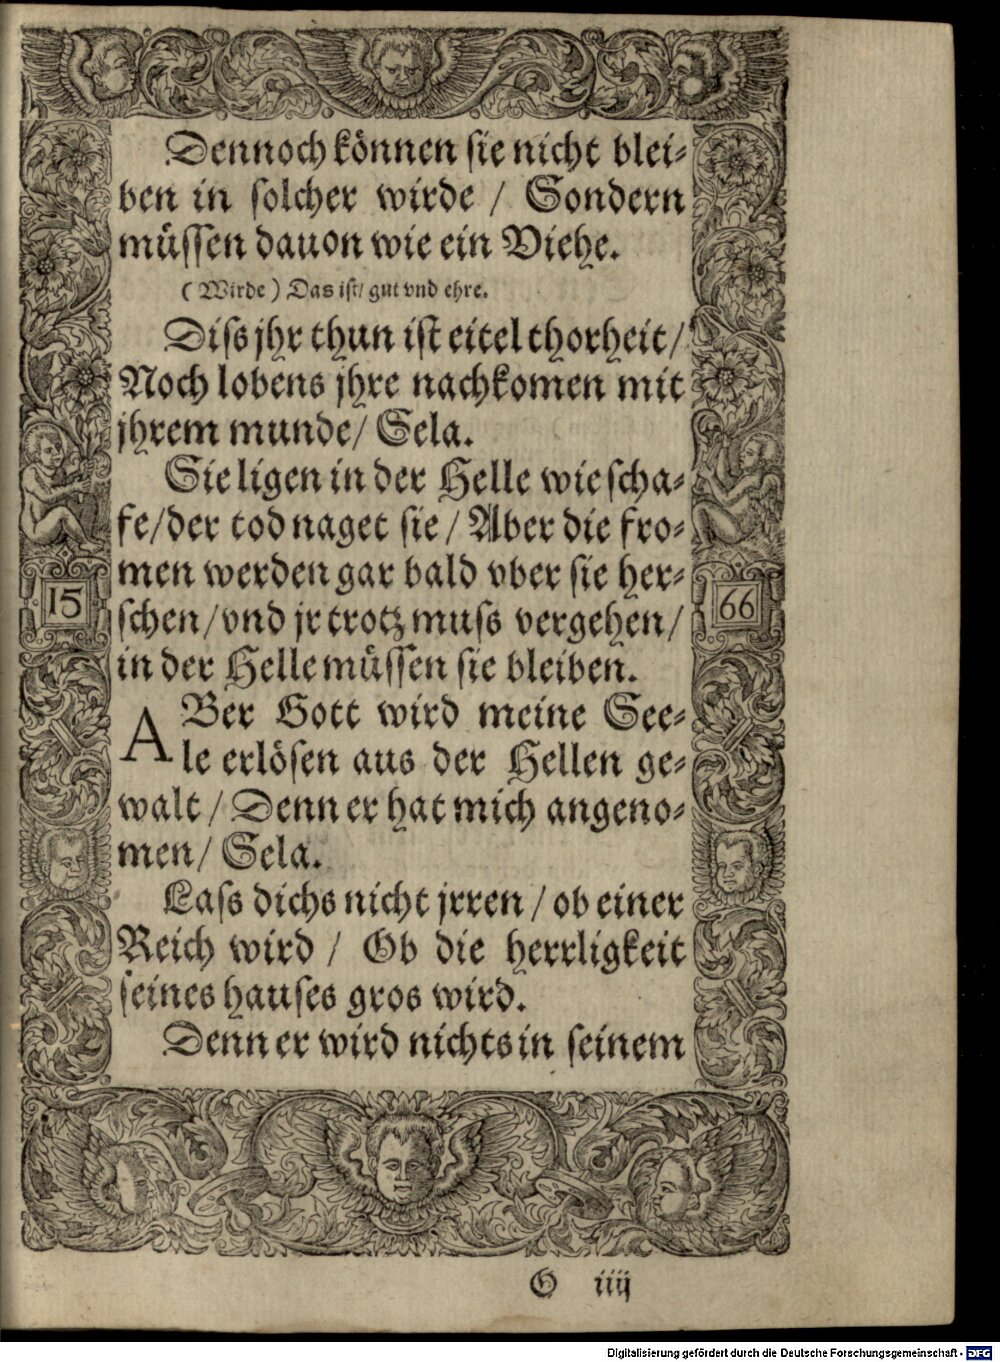 Dennoch können sie nicht blei⸗
ben in solcher wirde / Sondern
müssen dauon wie ein Viehe.
( Wirde ) Das ist/ gut vnd ehre.
Diss jhr thun ist eitel thorheit /
Noch lobens jhre nachkomen mit
jhrem munde / Sela.
Sie ligen in der Helle wie scha⸗
fe / der tod naget sie / Aber die fro⸗
men werden gar bald vber sie her⸗
schen / vnd jr trotz muss vergehen /
in der Helle müssen sie bleiben.
ABer Gott wird meine See⸗
le erlösen aus der Hellen ge⸗
walt / Denn er hat mich angeno⸗
men / Sela.
Lass dichs nicht jrren / ob einer
Reich wird / Ob die herrligkeit
seines hauses gros wird.
Denn er wird nichts in seinem
15
66
G iiij
Digitalisierung gefördert durch die Deutsche Forschungsgemeinschaft - DFG